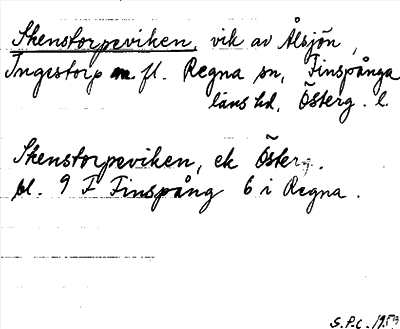 Skenstorpeviken, vik av Ålsjön,
Ingestorp m. fl. Regna sn, Finspånga
läns hd, Österg. l.
Skenstorpeviken, ek Österg.
bl. 9 F Finspång 6 i Regna.
S.P.C. 1959